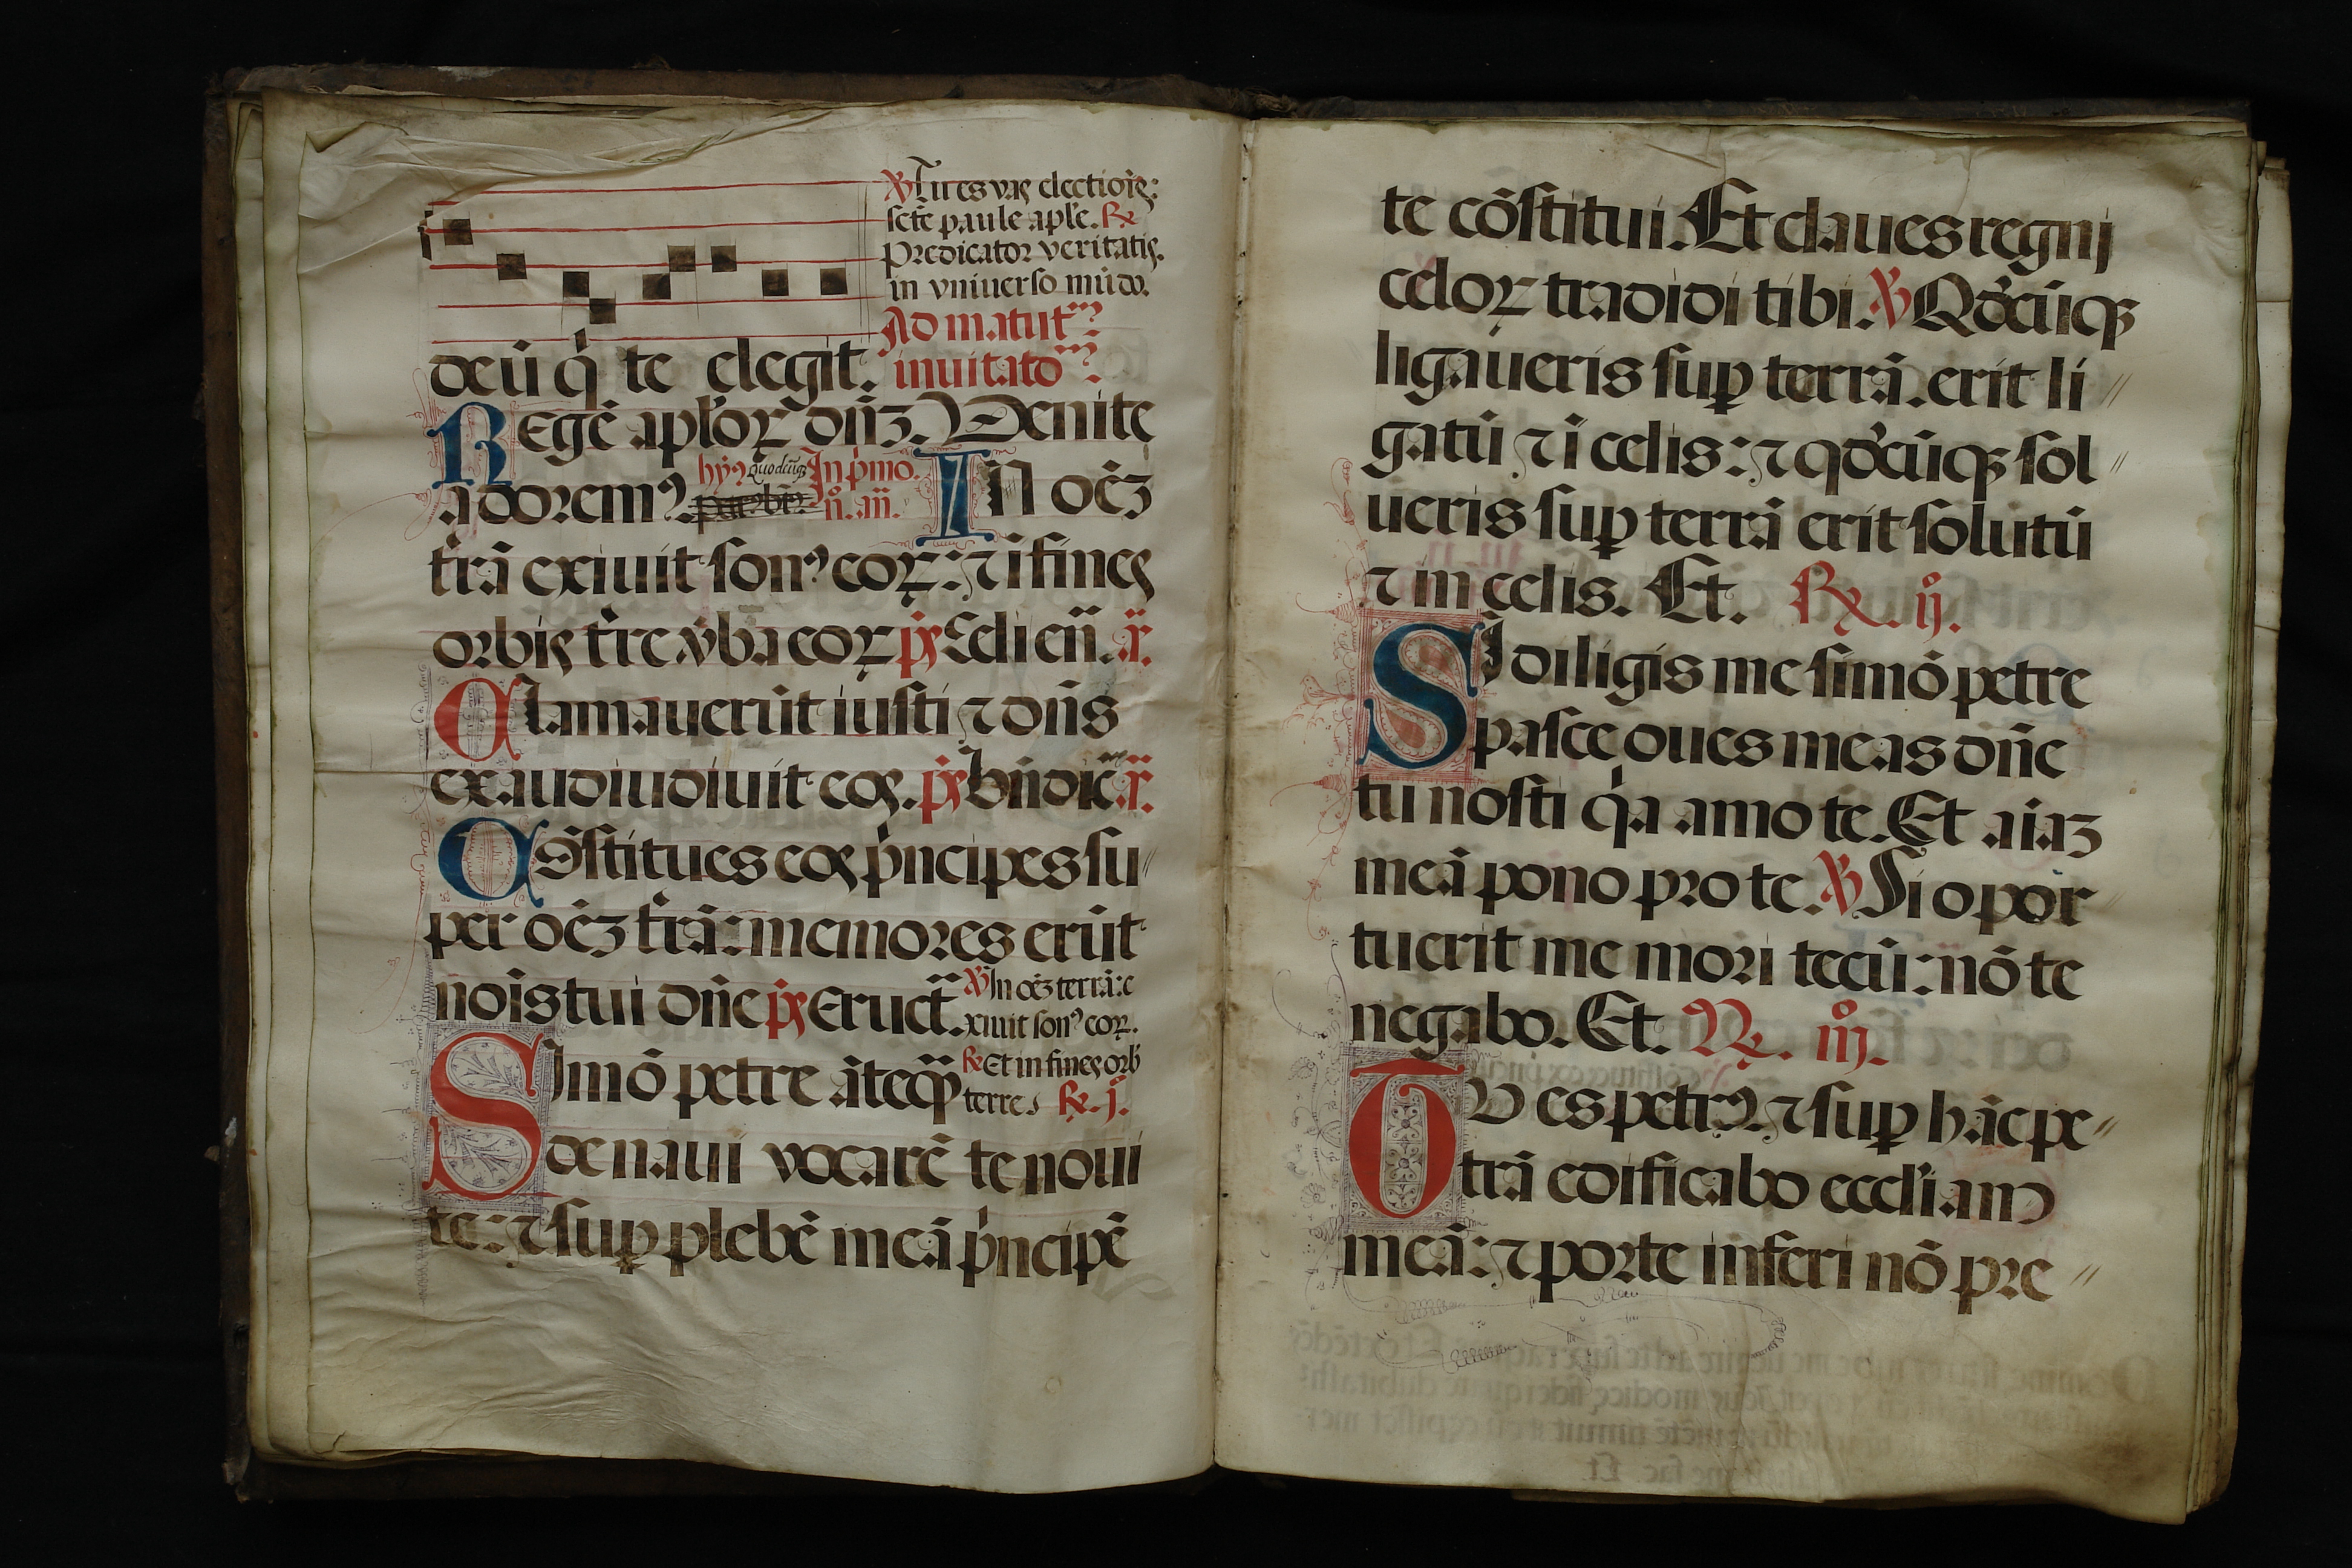 ℣ Tu es vas electiõis:
scẽte paule aple. ℟
predicator veritatis.
in vniuerso mũdo.
Ad matut
deũ q te elegit. inuitato
Regẽ aploꝝ dñz. Venite
adoremꝰ. hỹ quodcũqꝫ In pmo.
n. añ. In oẽz
trã exiuit sonꝰ eoꝝ: ⁊ i fines
orbis tre vba eoꝝ ps Celi eñ. a.
Clamauerũt iusti ⁊ dñs
exaudiudiuit eos. ps Bñdic a.
Cõstitues eos pncipes su//
per oẽz trã: memores erũt
nois tui dñe ps Eruct. ℣ In oẽz terrã: e
xiuit sonꝰ eoꝝ.
Simõ petre ãteqꝫ ℟ Et in fines orb
terre. ℟. j.
de naui vocarẽ te noui
te: ⁊ sup plebẽ meã pncipẽ
te cõstitui. Et claues regnj
celoꝝ tradidi tibi. ℣ Qdcũqꝫ
ligaueris sup terrã. erit li//
gatũ ⁊ i celis: ⁊ qdcũqꝫ sol//
ueris sup terrã erit solutũ
⁊ in celis. Et. ℟. ij.
Si diligis me simõ petre
pasce oues meas dñe
tu nosti qa amo te. Et aiaz
meã pono pro te. ℣ Si opor
tuerit me mori tecũ: nõ te
negabo. Et. ℟. iij.
Tu es petrꝰ. ⁊ sup hãc pe//
trã edificabo eccliam
meã: ⁊ porte inferi nõ pre//